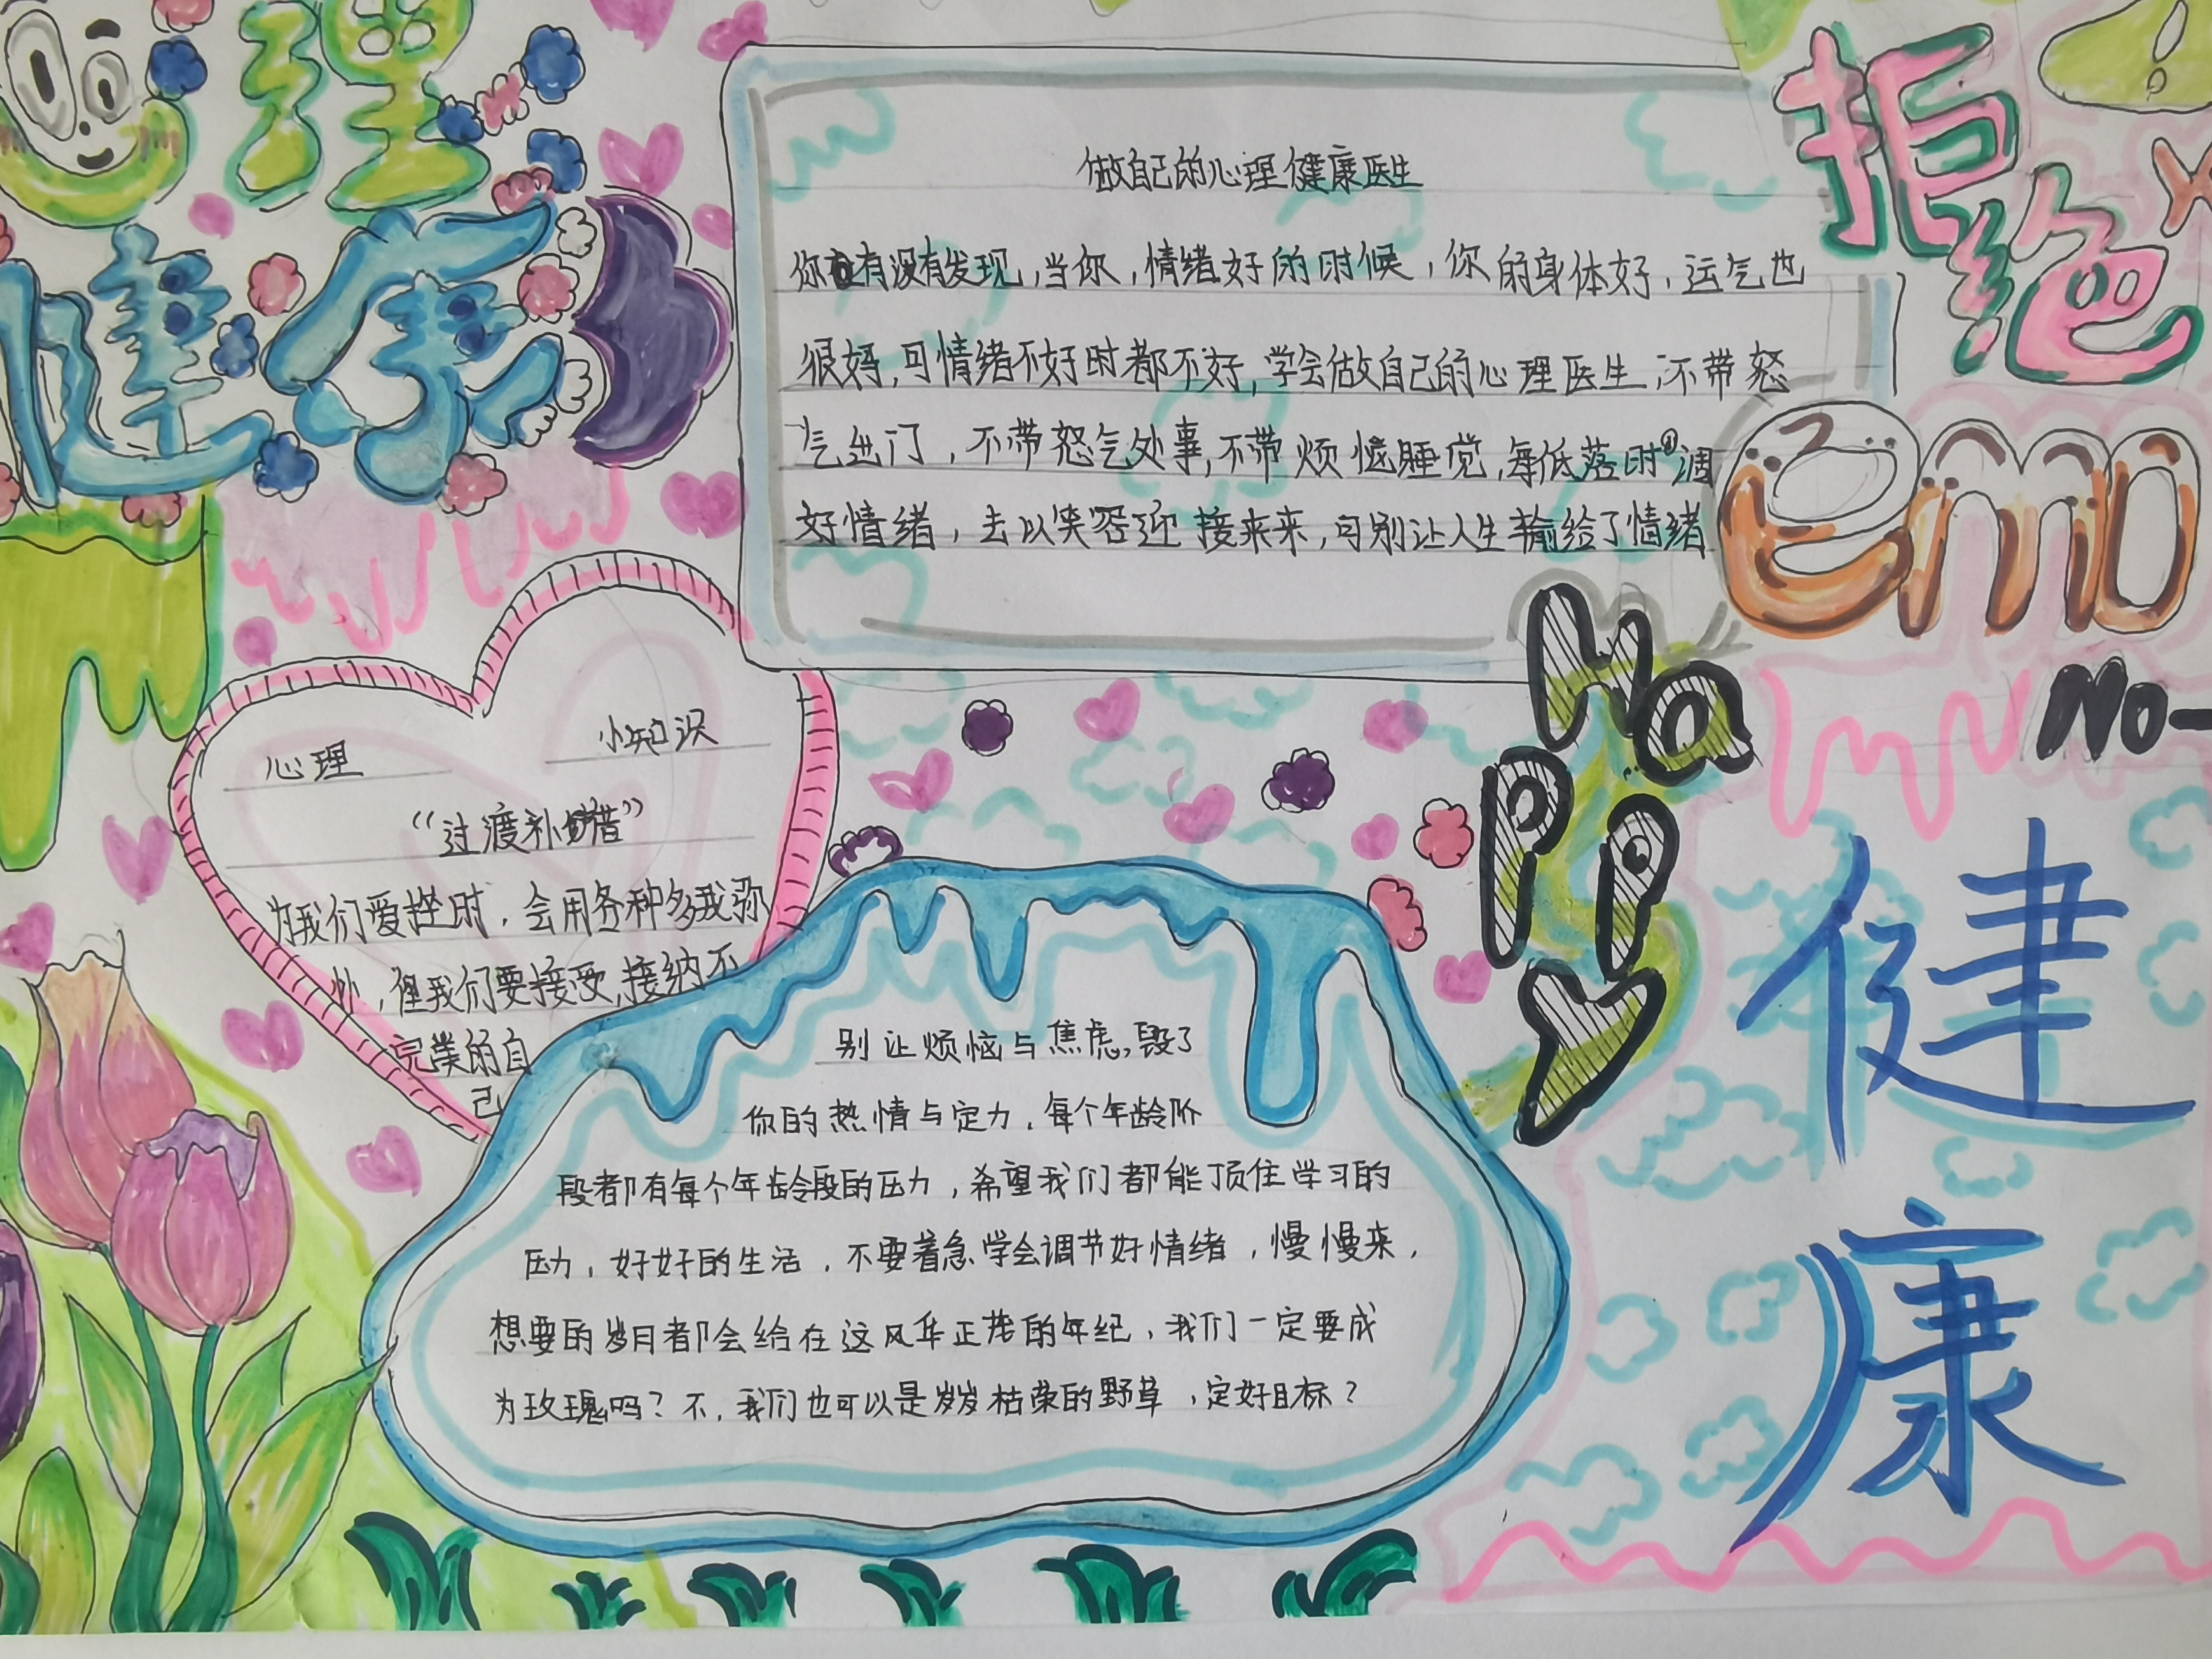 心理
健康
拒绝
emo
No-
做自己的心理健康医生
你有没有发现,当你,情绪好的时候,你的身体好,运气也
很好,可情绪不好时都不好,学会做自己的心理医生,不带怒
气进门,不带怒气处事,不带烦恼睡觉,每低落时调
好情绪,去以笑容迎接来来,可别让人生输给了情绪
HaPPiy
心理 小知识
“过渡补措”
为我们爱挫时,会用各种多我弥
补,但我们要接受,接纳不
完美的自
己
别让烦恼与焦虑,毁了
你的热情与定力,每个年龄阶
段都有每个年龄段的压力,希望我们都能顶住学习的
压力,好好的生活,不要着急学会调节好情绪,慢慢来,
想要的岁月都会给在这风华正茂的年纪,我们一定要成
为玫瑰吗?不,我们也可以是岁岁枯荣的野草,定好目标?
健
康